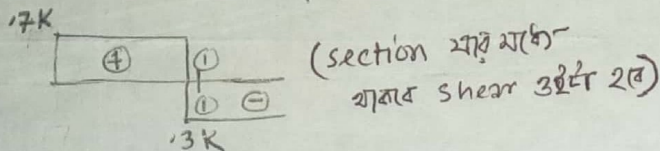 .7K
⊕ ①
① ⊖
.3 K
(section যার মধ্যে
থাকবে shear ওইটা হবে)